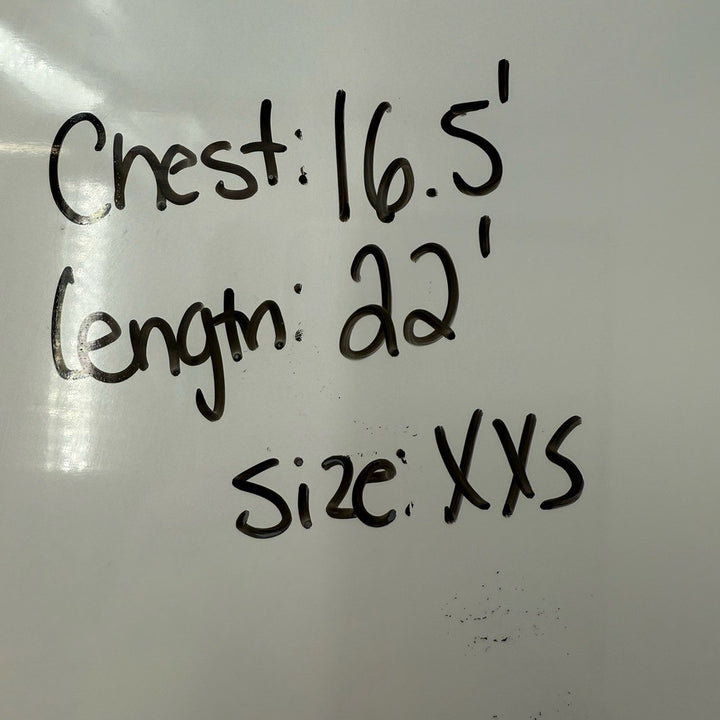 Chest: 16.5'
length: 22'
size: XXS